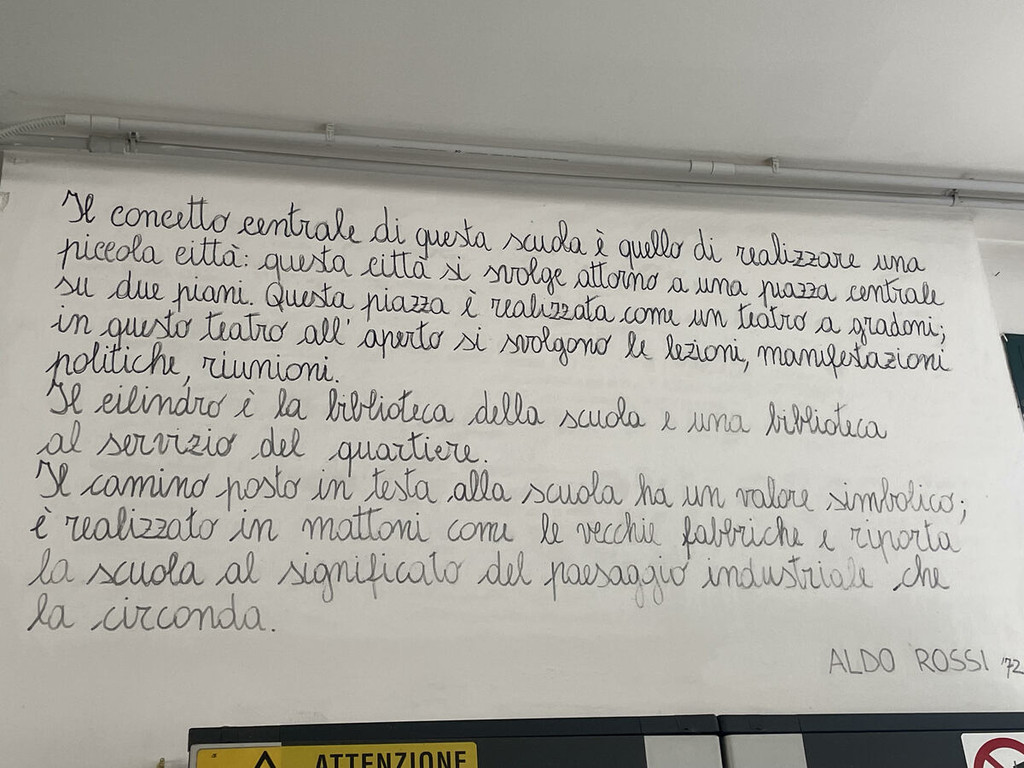 Il concetto centrale di questa scuola è quello di realizzare una
piccola città: questa città si svolge attorno a una piazza centrale
su due piani. Questa piazza è realizzata come un teatro a gradoni;
in questo teatro all'aperto si svolgono le lezioni, manifestazioni
politiche, riunioni.
Il cilindro è la biblioteca della scuola e una biblioteca
al servizio del quartiere.
Il camino posto in testa alla scuola ha un valore simbolico;
è realizzato in mattoni come le vecchie fabbriche e riporta
la scuola al significato del paesaggio industriale che
la circonda.
ALDO ROSSI '72
ATTENZIONE